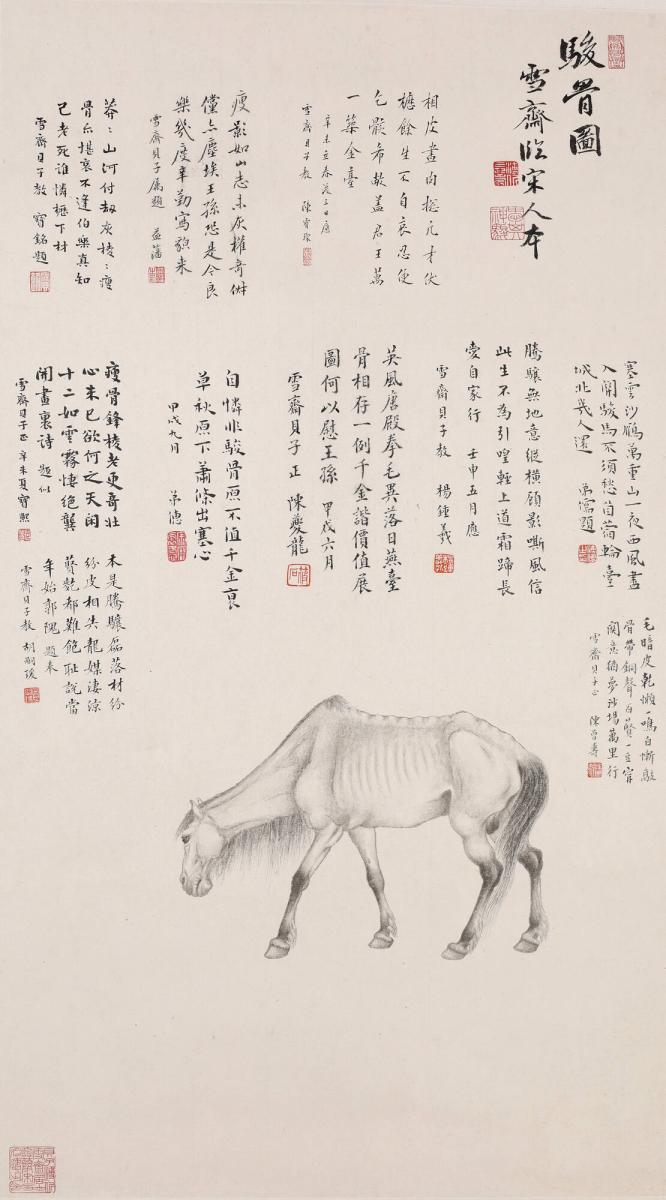 駿骨圖
雪齋臨宋人本
相皮畫肉總凡才伏
櫪餘生不自哀忍使
乞骸希敝蓋君王萬
一築金臺
辛未立春後三日應
雪齋貝子教 陳寶琛
瘦影如山志未灰權奇俶
儻亦塵埃王孫恐是今良
樂幾度辛勤寫貌來
雪齋貝子屬題 益藩
莽〻山河付劫灰棱〻瘦
骨亦堪哀不逢伯樂真知
己老死誰憐櫪下材
雪齋貝子教 寶銘題
寒雲沙鴈萬重山一夜西風盡
入關駿馬不須愁苜蓿輪臺
城北幾人還 弟儒題
騰驤無地意縱橫顧影嘶風信
此生不為引喤輕上道霜蹄長
愛自家行 壬申五月應
雪齋貝子教 楊鍾羲
英風唐殿拳毛異落日燕臺
骨相存一例千金諧價值展
圖何以慰王孫 甲戌六月
雪齋貝子正 陳夔龍
自憐非駿骨原不值千金衰
草秋原下蕭條出塞心
甲戌九月 弟僡
瘦骨鋒棱老更奇壯
心未已欲何之天閑
十二如雲霧悽絕龔
開畫裏詩 題似
雪齋貝子正 辛未夏 寶熙
本是騰驤磊落材紛
紛皮相失龍媒淒涼
都難飽恥說當
年始郭隗 題奉
雪齋貝子教 胡嗣瑗
毛暗皮乾懶一鳴自慚駿
骨帶銅聲白
意猶夢沙場萬里行
雪齋貝子正 陳曾壽